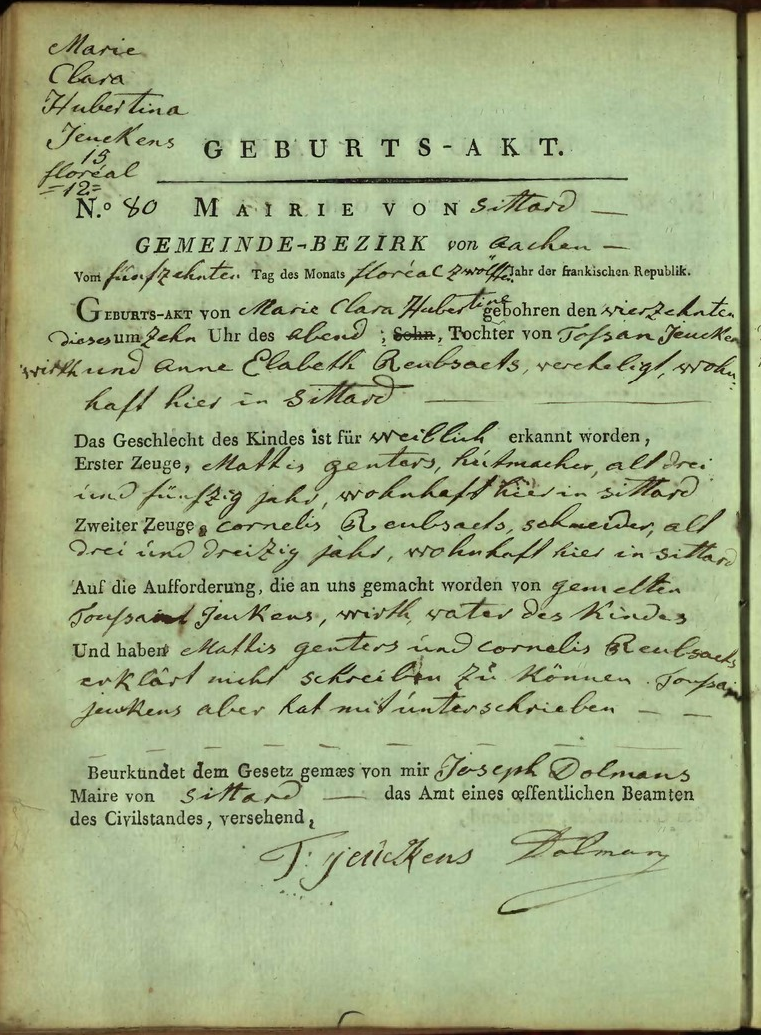 Marie
Clara
Hubertina
Jeuckens
15
floréal
=12=
GEBURTS-AKT.
N.º 80 MAIRIE VON Sittard —
GEMEINDE-BEZIRK von Aachen —
Vom fünfzehnten Tag des Monats floréal zwölften Jahr der frankischen Republik.
GEBURTS-AKT von Marie Clara Hubertine gebohren den vierzehnten
dieses um zehn Uhr des abend ; Sohn, Tochter von Tossan Jeucken
wirth und Anne Elabeth Reubsaets, vereheligt, wohn-
haft hier in Sittard —
Das Geschlecht des Kindes ist für weiblich erkannt worden,
Erster Zeuge, Mattis genters, hütmacher, alt drei
und fünfzig jahr, wohnhaft hier in sittard
Zweiter Zeuge, cornelis Reubsaets, schneider, alt
drei und dreizig jahr, wohnhaft hier in sittard
Auf die Aufforderung, die an uns gemacht worden von gemelten
Toussaint Jeukens, wirth, vater des Kindes
Und haben Mattis genters und cornelis Reubsaets
erklärt nicht schreiben zu können. Toussain
jeukens aber hat mit unterschrieben — —
Beurkundet dem Gesetz gemæs von mir Joseph Dolmans
Maire von Sittard — das Amt eines œffentlichen Beamten
des Civilstandes, versehend,
T: jeuckens Dolmans